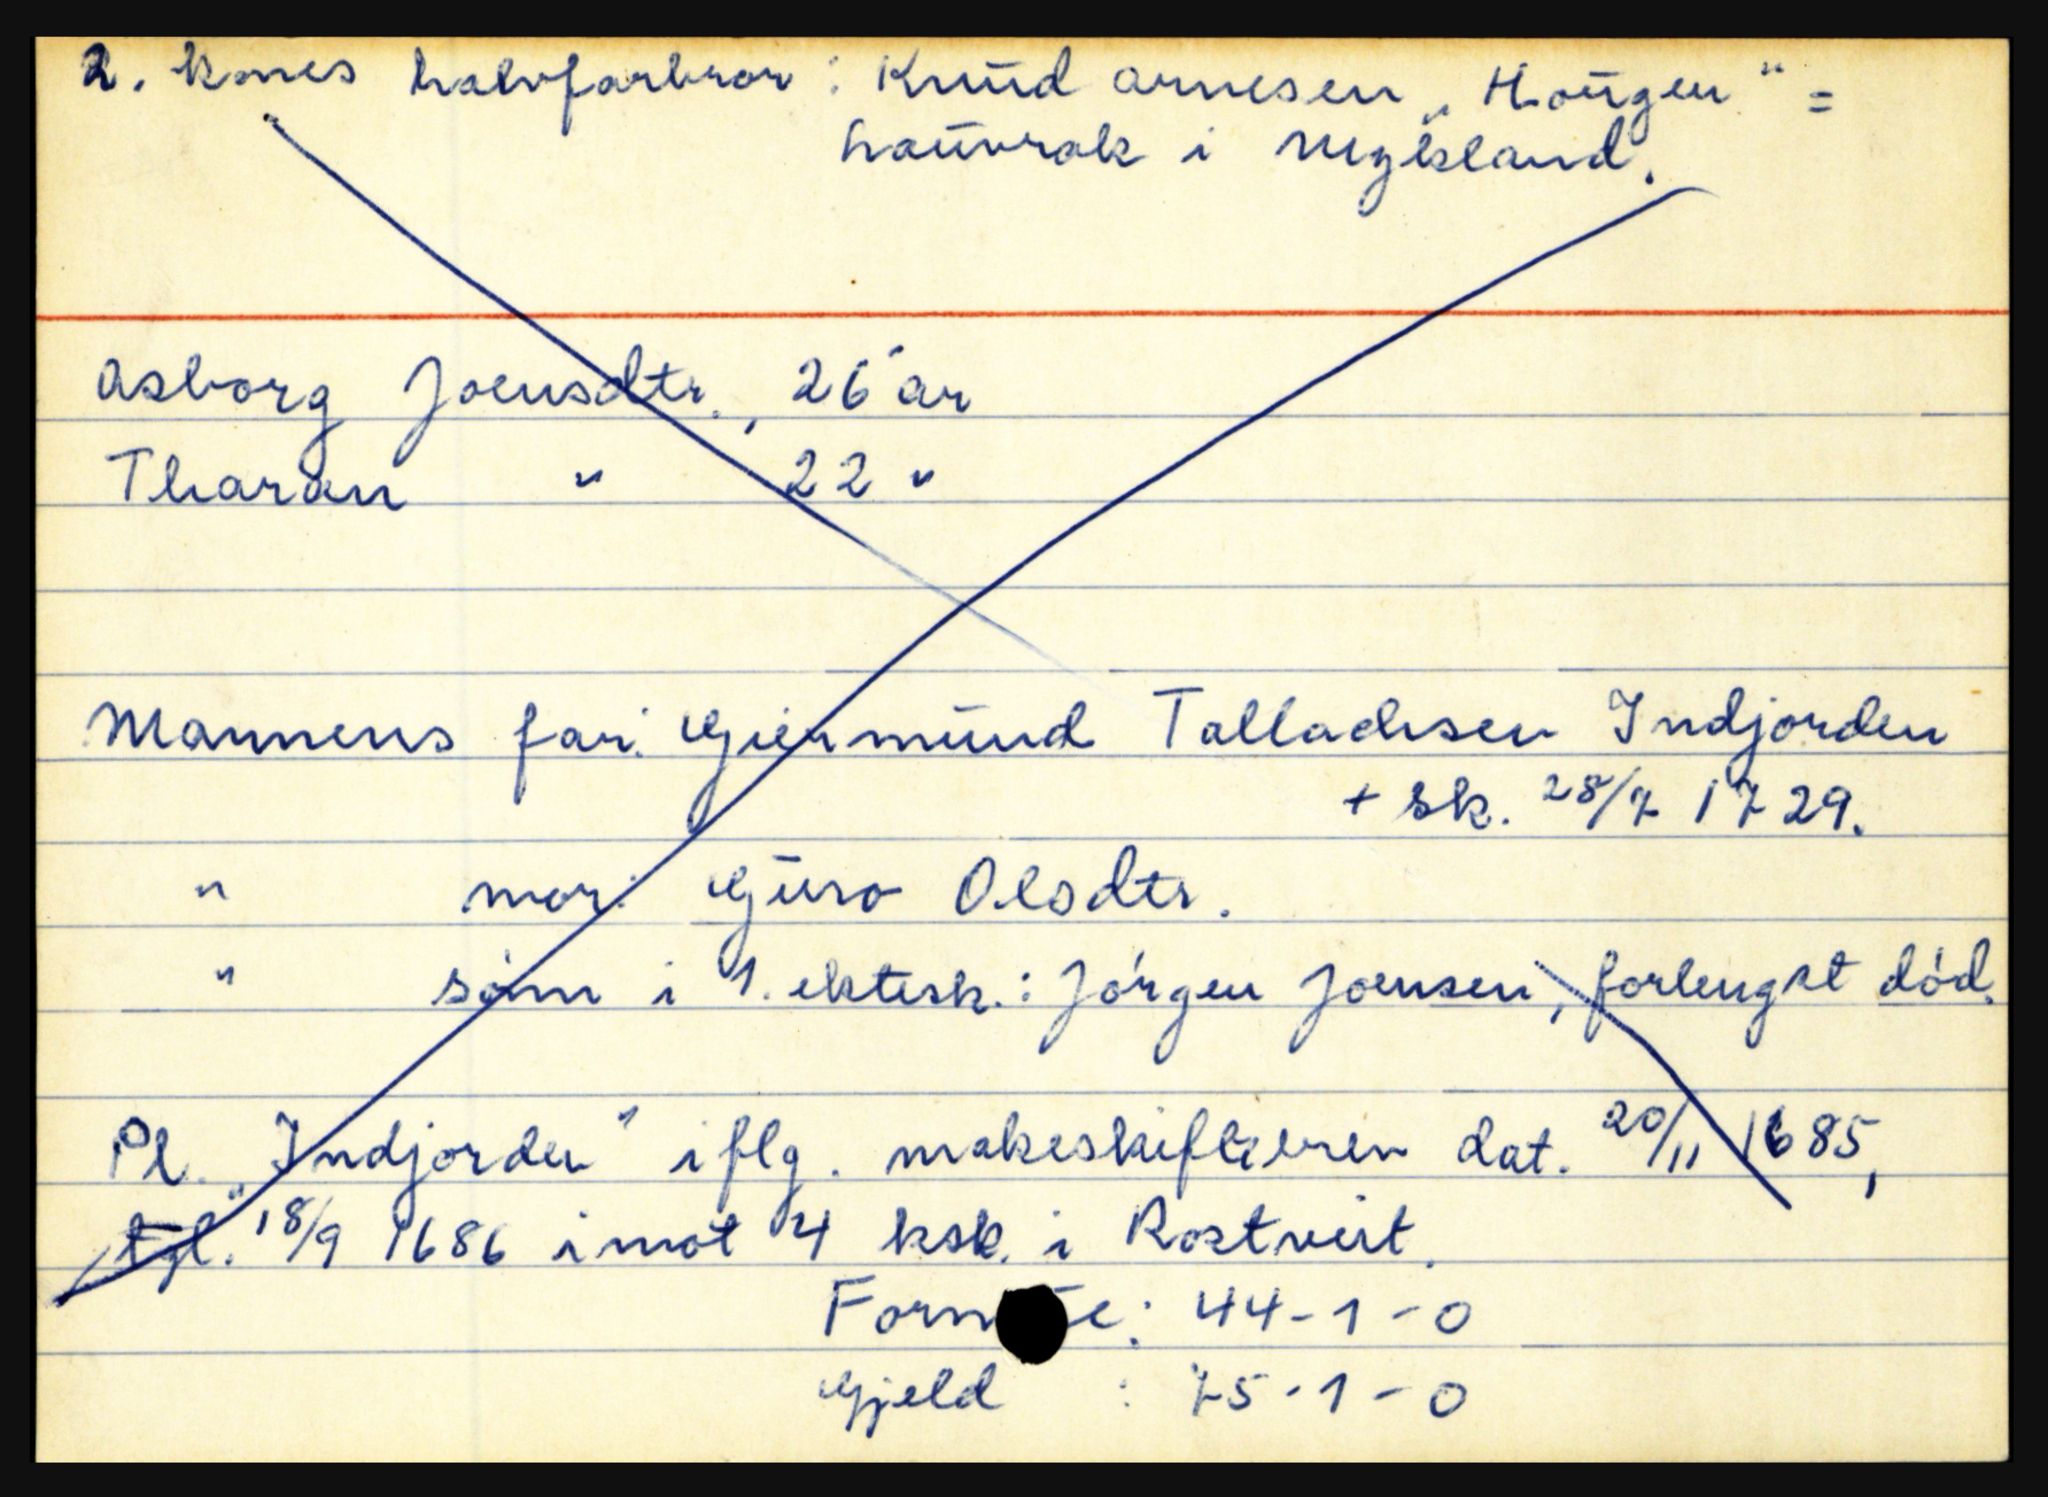 2. kones halvfarbror: Knud Arnesen „Hougen" =
Hauvrak i Mykland.
Asborg Joensdtr., 26 år
Tharan " 22 "
Mannens far: Giermund Talladsen Indjorden
+ sk. 28/7 1729.
" mor: Guro Olsdtr.
" sønn i 1. ektesk.: Jørgen Joensen, forlengst død.
Pl. „Indjorden" iflg. makeskiftebrev dat. 20/11 1685,
tgl. 18/9 1686 imot 4 ksk. i Rostveit.
Formue: 44-1-0
Gjeld : 75-1-0